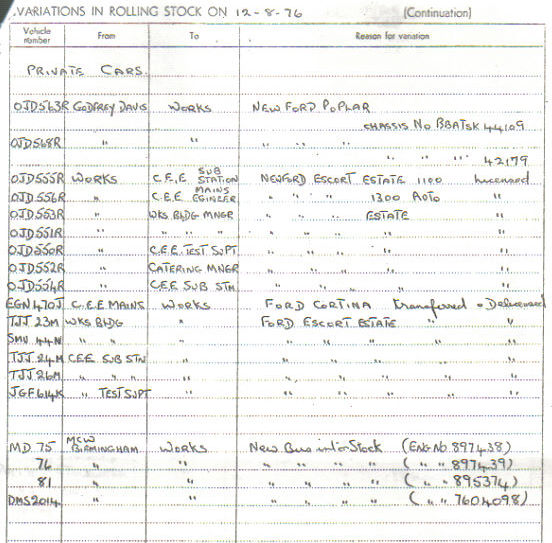 VARIATIONS IN ROLLING STOCK ON 12-8-76 (Continuation)
Vehicle number From To Reason for variation
PRIVATE CARS.
OJD563R GODFREY DAVIS WORKS NEW FORD POPLAR
CHASSIS NO BBATSK 44109
OJD568R " " " " "
" " " 42179
OJD555R WORKS C.E.E SUB STATION NEW FORD ESCORT ESTATE 1100 Licensed
OJD556R " C.E.E MAINS EGINEER " " " 1300 AUTO "
OJD553R " WKS BLDG MNGR " " " ESTATE "
OJD551R " " " " " " " " "
OJD550R " C.E.E. TEST SUPT " " " " "
OJD552R " CATERING MNGR " " " " "
OJD554R " CEE SUB STN " " " " "
EGN 470J C.E.E MAINS WORKS FORD CORTINA transferred + Delicensed
TJJ 23M WKS BLDG " FORD ESCORT ESTATE " "
SMV 44N " " " " " " " "
TJJ 24M CEE SUB STN " " " " " "
TJJ 26M " " " " " " " " "
JGF 614K " TEST SUPT " " " " " "
MD 75 MCW BIRMINGHAM WORKS New Bus into Stock (ENG NO 897438)
76 " " " " " " ( " " 897439)
81 " " " " " " ( " " 895374)
DMS2014 " " " " " " ( " " 7604098)